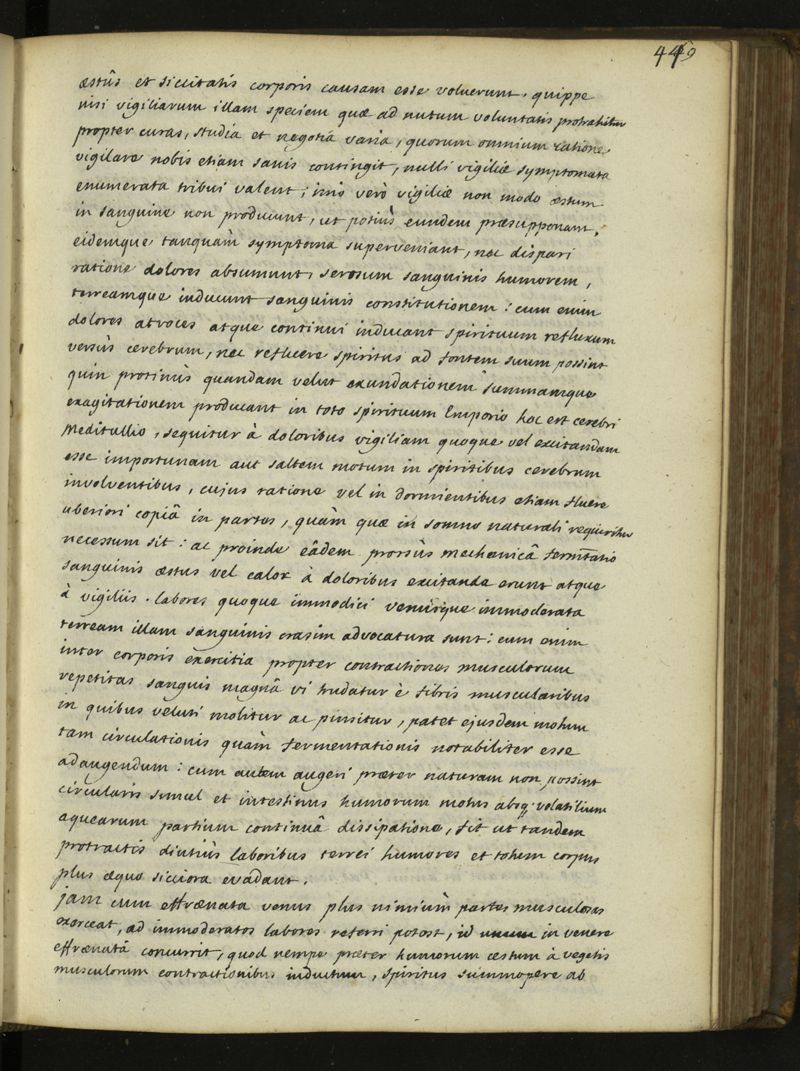 449
æstûs et siccitatis corporis causam esse voluerunt, quippe
nisi vigiliarum illam speciem quæ ad nutum voluntatis protrahitur
propter curas, studia et negotia varia, quorum omnium ratione
vigilare nobis etiam sanis contingit, nulli vigiliæ symptomata
enumerata tribui valent; imò verò vigiliæ non modo æstum
in sanguine non producunt, ut potiùs eundem præsupponant,
eidemque tanquàm symptoma superveniant, nec dispari
ratione dolores absumunt serosum sanguinis humorem,
terreamque inducunt sanguinis constitutionem: cum enim
dolores atroces atque continui inducant spirituum refluxum
versùs cerebrum, nec refluere spiritus ad fontem suum possint
quin protinùs quandam velut exundationem summamque
exagitationem producant in toto spirituum Emporio hoc est cerebri
meditullio, sequitur à doloribus vigiliam quoque vel excitandam
esse importunam aut saltem motum in spiritibus cerebrum
involventibus, cujus ratione vel in dormientibus etiam fluere
uberiori copiâ in partes, quàm quæ in somno naturali requiritur
necessum sit: ac proinde eâdem prorsùs mechanicâ fermtatio
sanguinis æstus vel calor à doloribus excitanda erunt atque
à vigiliis. labores quoque immodici venusque immoderata
terream illam sanguinis crasim advocatura sunt: cum enim
inter corporis exercitia propter contractiones musculorum
repetitas sanguis magnâ vi trudatur è fibris muscularibus
in quibus veluti molitur ac pinsitur, patet ejusdem motum
tam circulationis quàm fermentationis notabiliter esse
adaugendum: cum autem augeri præter naturam non possint
circularis simul et intestinus humorum motus absq; volatilium
aquearum partium continuâ dissipatione, fit ut tandem
protractis diutiùs laboribus terrei humores et totum corpus
plus æquo sicciora evadant.
jam cum effrænata venus plus nimiùm partes musculosas
exerceat, ad immoderatos labores referri potest, id in venere
effrænatâ concurrit, quod nempe præter humorum æstum à
musculorum contractionibus inductum, spiritus summopere ab